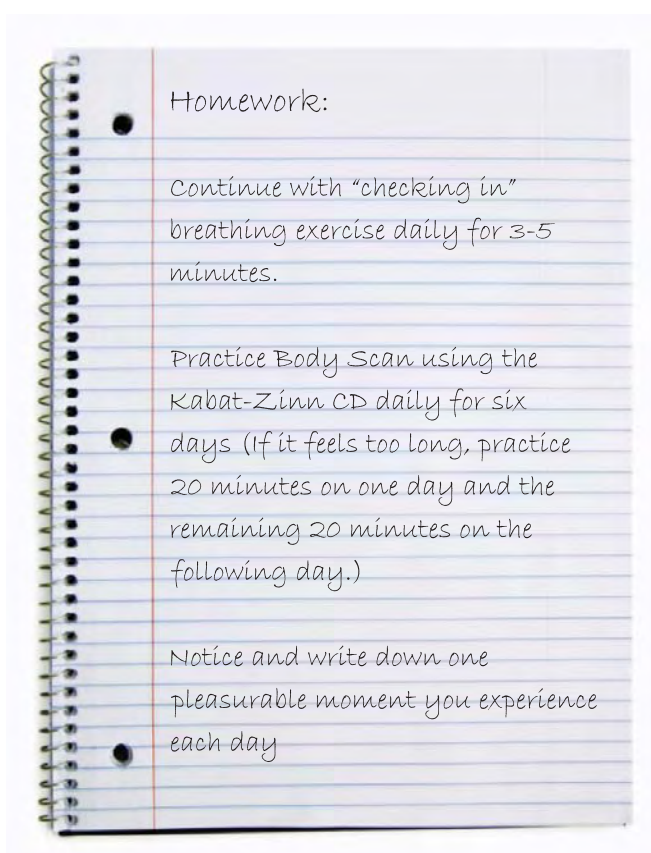 Homework:
Continue with “checking in”
breathing exercise daily for 3-5
minutes.
Practice Body Scan using the
Kabat-Zinn CD daily for six
days (If it feels too long, practice
20 minutes on one day and the
remaining 20 minutes on the
following day.)
Notice and write down one
pleasurable moment you experience
each day